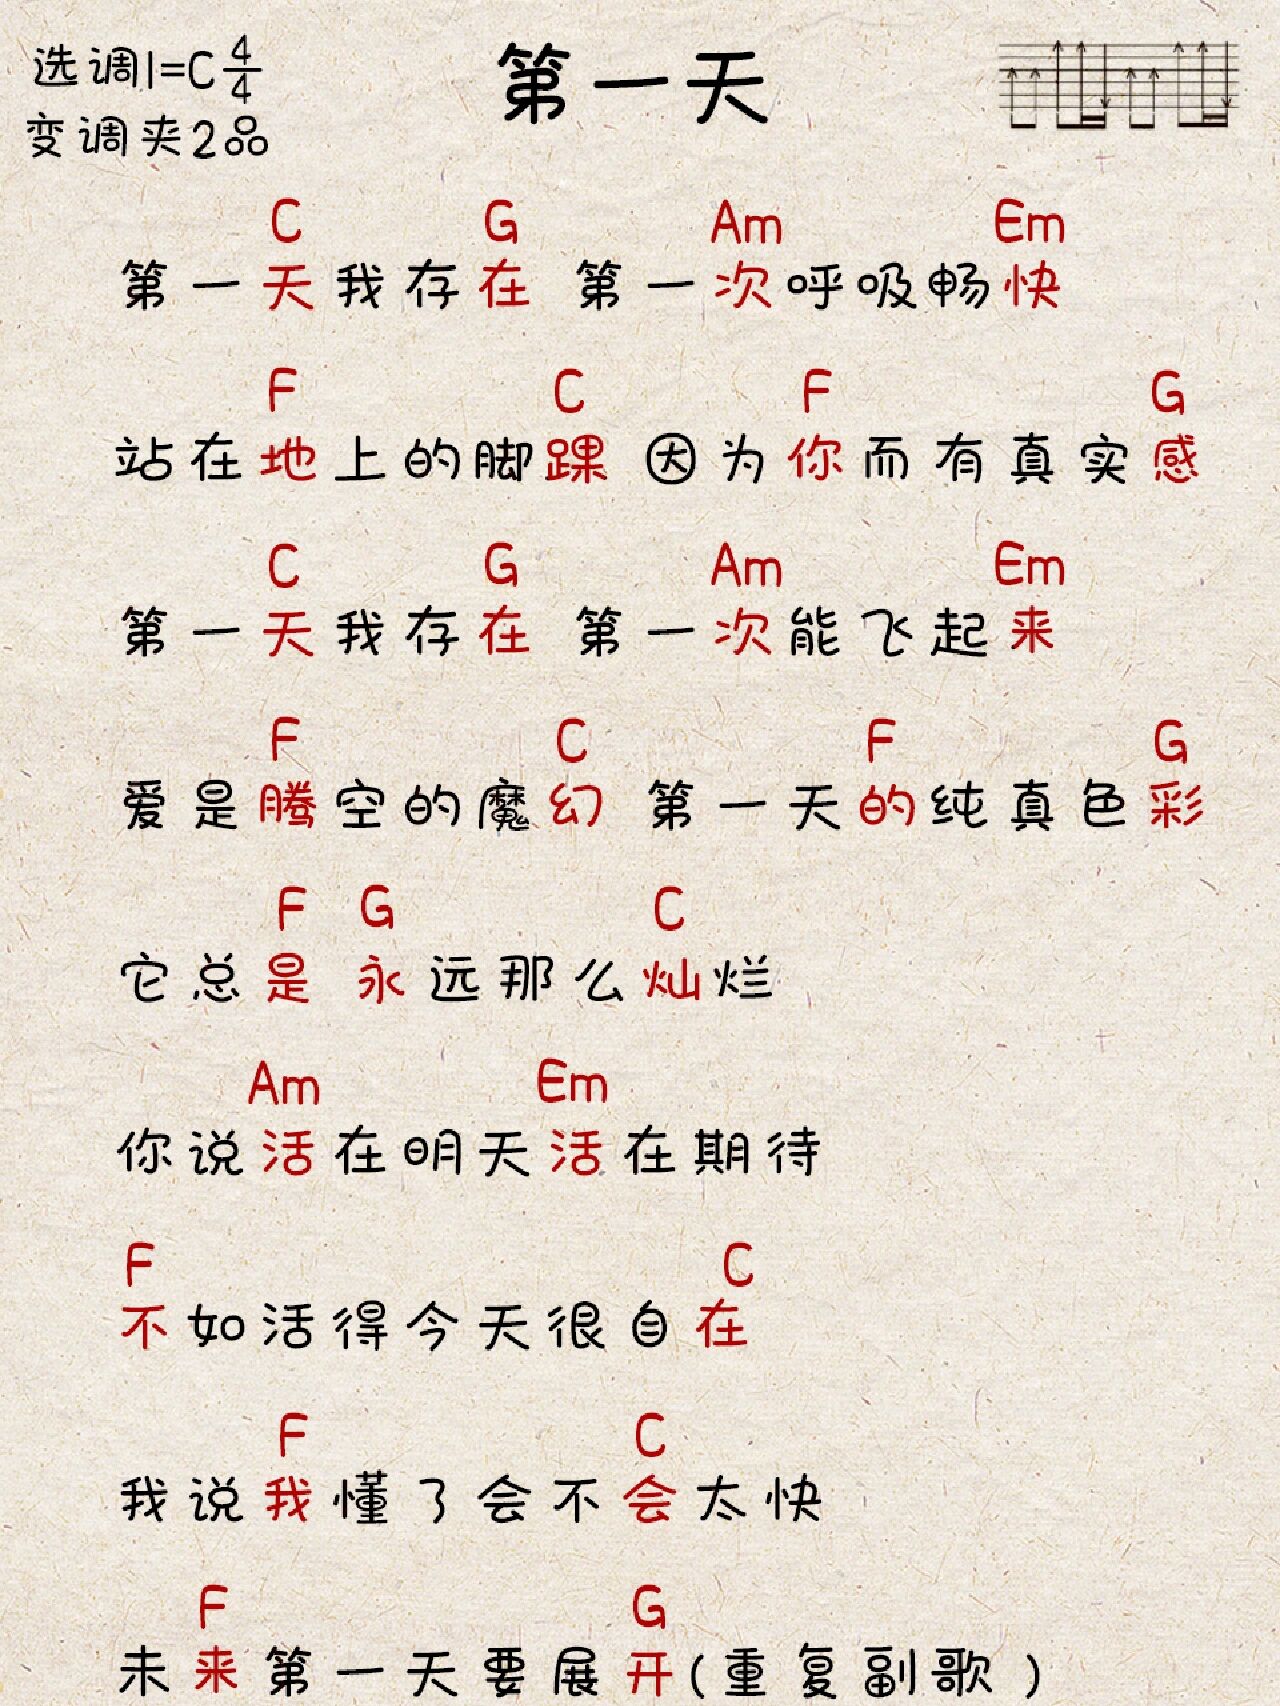 选调1=C 4/4
第一天
变调夹2品
C G Am Em
第一天我存在 第一次呼吸畅快
F C F G
站在地上的脚踝 因为你而有真实感
C G Am Em
第一天我存在 第一次能飞起来
F C F G
爱是腾空的魔幻 第一天的纯真色彩
F G C
它总是 永远那么灿烂
Am Em
你说活在明天活在期待
F C
不如活得今天很自在
F C
我说我懂了会不会太快
F G
未来第一天要展开(重复副歌)